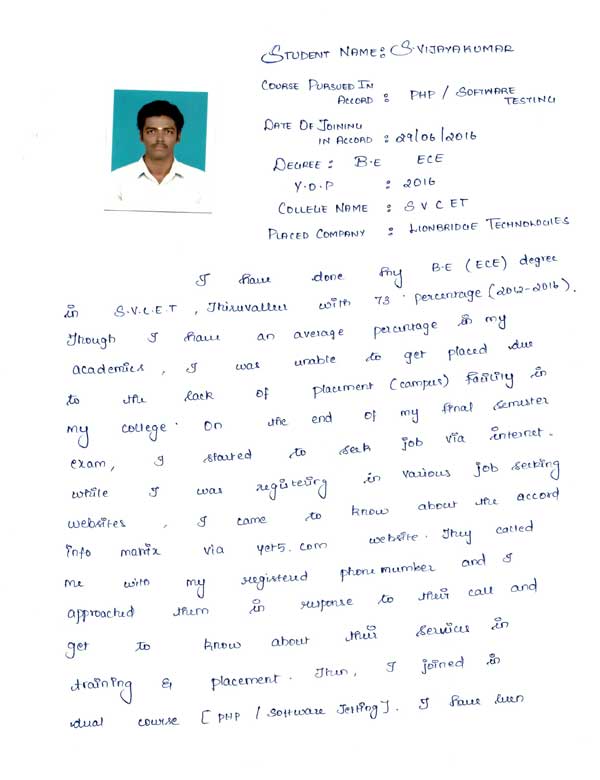 STUDENT NAME: S.VIJAYAKUMAR
COURSE PURSUED IN
ACCORD : PHP / SOFTWARE
TESTING
DATE OF JOINING
IN ACCORD : 29/06/2016
DEGREE : B.E ECE
Y.O.P : 2016
COLLEGE NAME : S V C E T
PLACED COMPANY : LIONBRIDGE TECHNOLOGIES
I have done my B.E (ECE) degree
in S.V.C.E.T, Thiruvallur with 73 percentage (2012-2016).
Though I have an average percentage in my
academics, I was unable to get placed due
to the lack of placement (campus) facility in
my college. On the end of my final semester
exam, I started to seek job via internet.
while I was registering in various job seeking
websites, I came to know about the accord
info matrix via yet5.com website. They called
me with my registered phone number and I
approached them in response to their call and
get to know about their services in
training & placement. Then, I joined in
dual course [PHP / Software Testing]. I have been